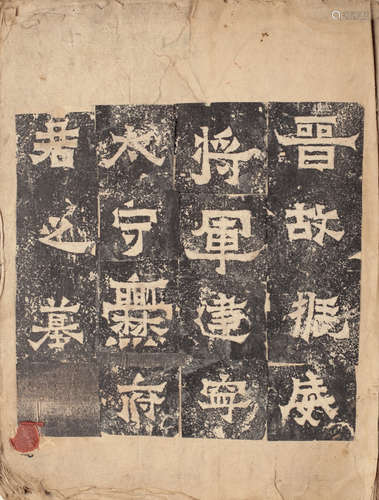 晉故振威
将軍建寧
太守爨府
君之墓